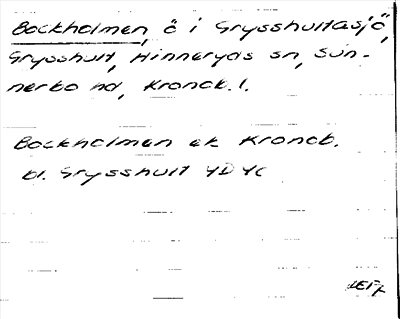 Bockholmen, ö i Grysshultasjö,
Grysshult, Hinneryds sn, Sun-
nerbo hd, Kronob. l.
Bockholmen ek Kronob.
bl. Grysshult 4D 4c